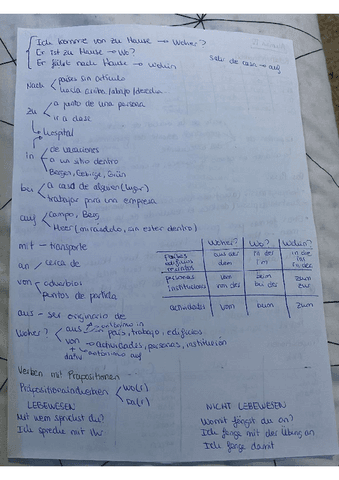 Ich komme von zu Hause → Woher?
Er ist zu Hause → Wo?
Er fährt nach Hause → wohin
salir de casa → auf
Nach
países sin artículo
hacia arriba/abajo/derecha
zu
a punto de una persona
ir a clase
hospital
in
de vacaciones
a un sitio dentro
Bergen, Gebirge, Grün
bei
a casa de alguien (lugar)
trabajar para una empresa
auf
Campo, Berg
Meer (mirandolo, sin estar dentro)
mit → transporte
an / cerca de
von
adverbios
puntos de partida
Woher? Wo? Wohin?
países edificios
aus der in der in die
dem im
personas instituciones
vom beim zum
von der bei der zur
actividades vom beim zum
aus - ser originario de
Woher?
aus → antónimo in
país, trabajo, edificios
von → actividades, personas, institución
+ dativ antónimo auf
Verben mit Präpositionen
Präpositionaladverbien
wo(r)
da(r)
LEBEWESEN
Mit wem sprichst du?
Ich spreche mit ihr
NICHT LEBEWESEN
Womit fängst du an?
Ich fange mit der Übung an
Ich fange damit